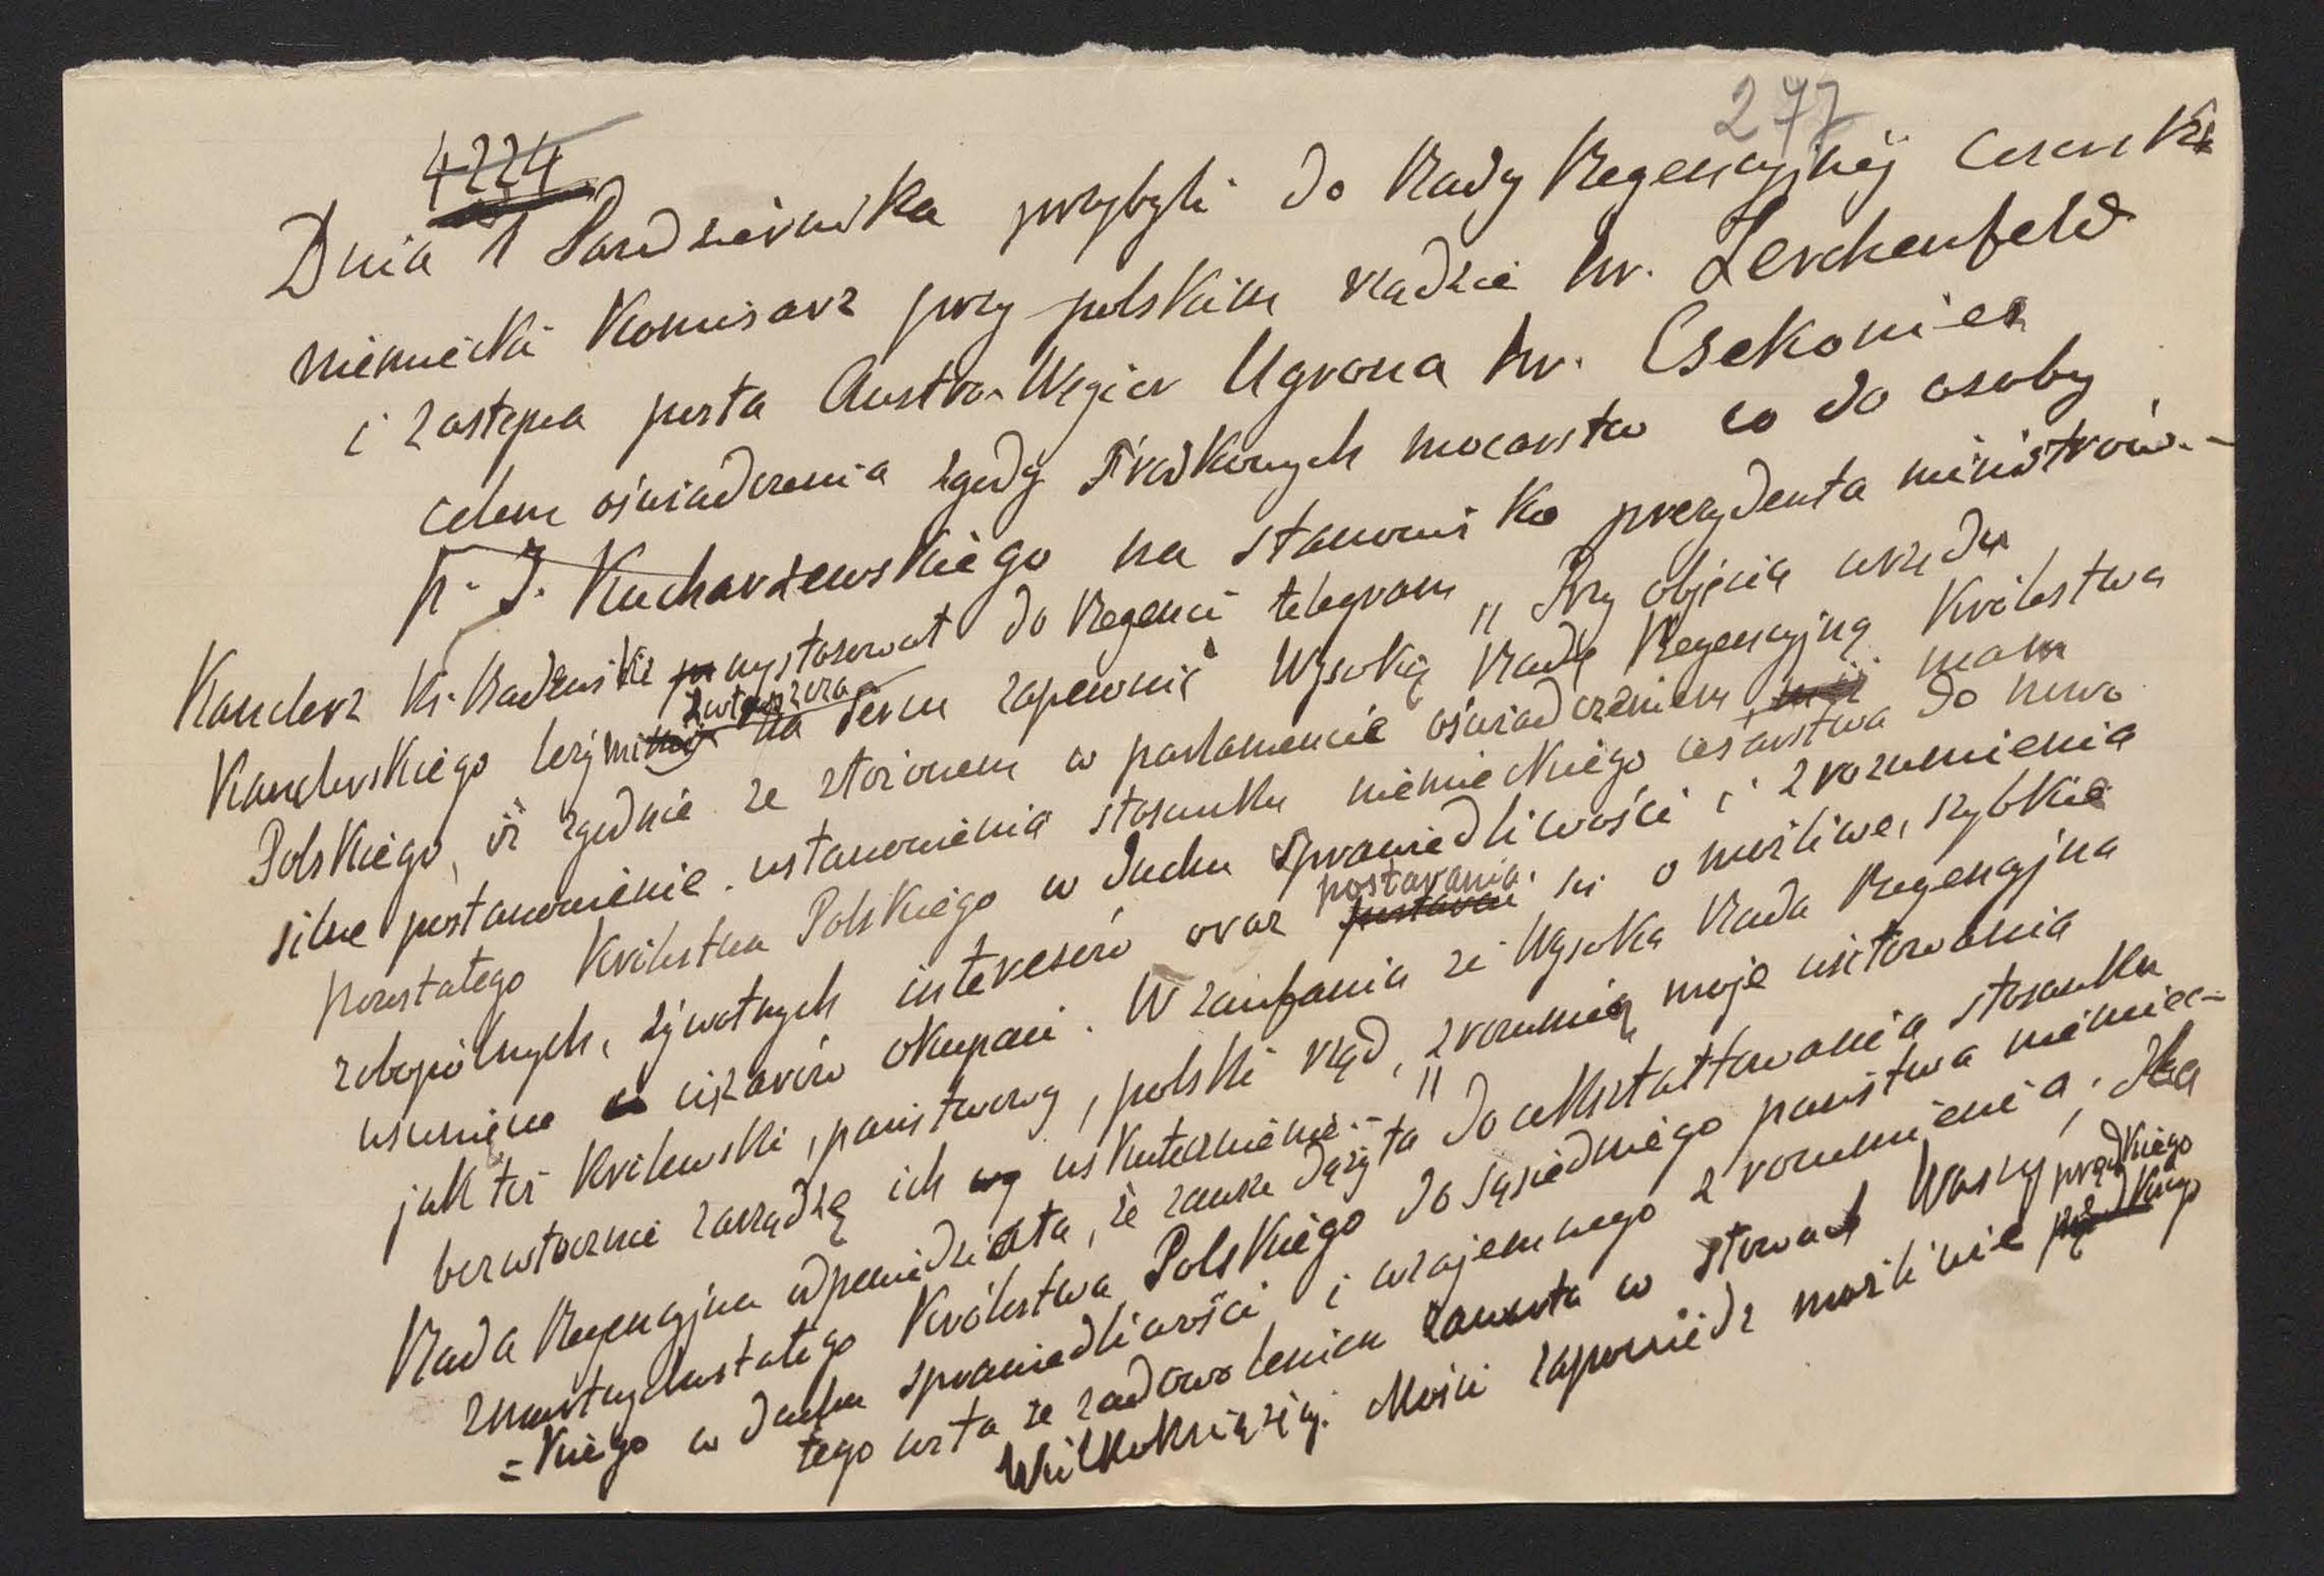 277
4224
Dnia 1 Październ\ika przybyli do Rady Regencyjnej Cesarsk
niemiecki Komisarz przy polskim rządzie hr. Lerchenfeld
i zastępca posta Austro-Węgier Ugrona hr. Csekonics
celem oświadczenia zgody środkowych mocarstw co do osoby
p. J. Kucharzewskiego na stanowisko prezydenta ministrów.-
Kanclerz Ks. Badeński wystosował do Regencji telegram „Przy objęciu urzędu
Kanclerskiego leży mi na sercu zapewnić Wysoką Radę Regencyjną Królestwa
Polskiego, iż zgodnie ze złożonem w parlamencie oświadczeniem mam
silne postanowienie ustanowienia stosunku niemieckiego cesarstwa do nowo
powstałego Królestwa Polskiego w duchu sprawiedliwości i zrozumienia
zobopólnych, żywotnych interesów oraz postarania się o możliwe, szybkie
usunięcie ciężarów okupacji. W zaufaniu że Wysoka Rada Regencyjna
jak też Królewski, państwowy, polski rząd, zrozumieją moje usiłowania
bezwłocznie zarządzę ich uskutecznienie.-"
Rada Regencyjna odpowiedziała, że zawsze dążyła do ukształtowania stosunku
zmartwychwstałego Królestwa Polskiego do sąsiedniego państwa niemiec-
=kiego w duchu sprawiedliwości i wzajemnego zrozumienia. Dla
tego wita ze zadowoleniem zawartą w słowach Waszej
Wielkoksiążęcej Mości zapowiedź możliwie prędkiego